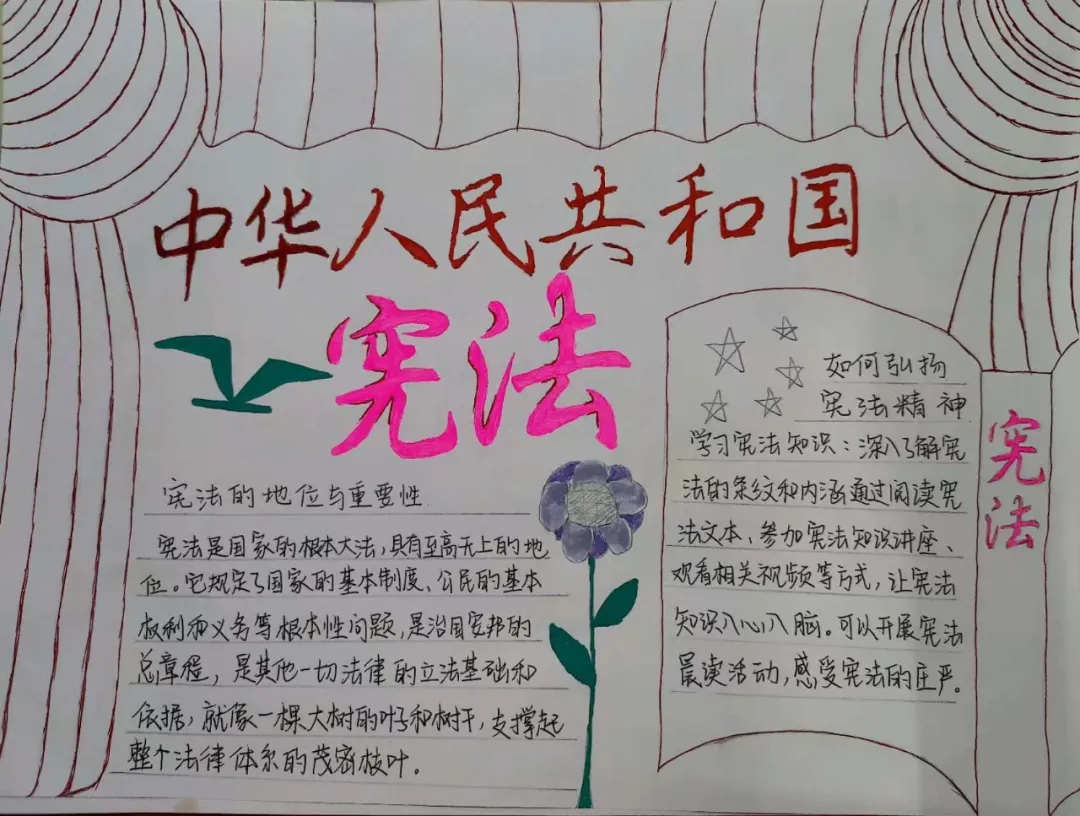 中华人民共和国
宪法
宪法的地位与重要性
宪法是国家的根本大法，具有至高无上的地
位。它规定了国家的基本制度、公民的基本
权利和义务等根本性问题，是治国安邦的
总章程，是其他一切法律的立法基础和
依据，就像一棵大树的叶子和树干，支撑起
整个法律体系的茂密枝叶。
如何弘扬
宪法精神
学习宪法知识：深入了解宪
法的条纹和内涵通过阅读宪
法文本、参加宪法知识讲座、
观看相关视频等方式，让宪法
知识入心入脑。可以开展宪法
晨读活动，感受宪法的庄严。
宪法